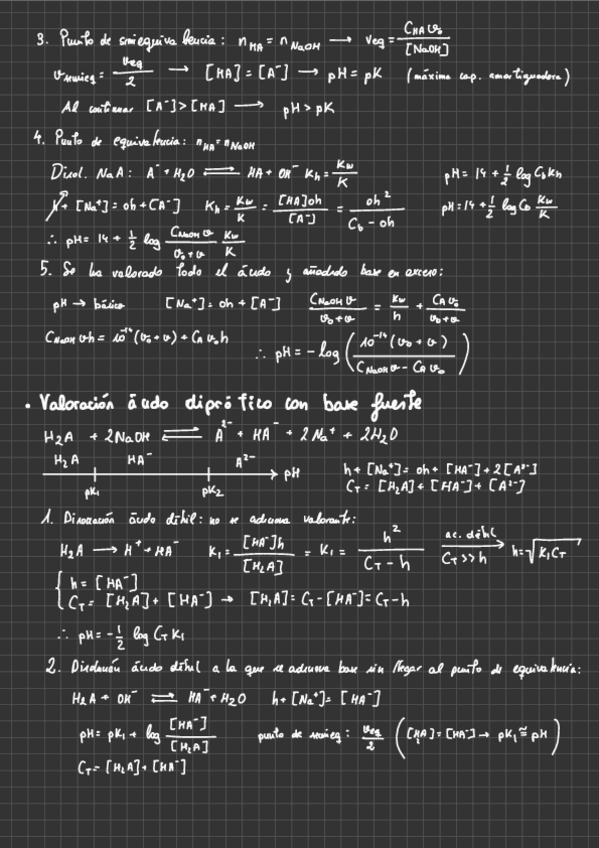 3. Punto de semiequivalencia: n_HA = n_NaOH → v_eq = C_HA v₀ / [NaOH]
v_semieq = v_eq / 2 → [HA] = [A⁻] → pH = pK (máxima cap. amortiguadora)
Al continuar [A⁻] > [HA] → pH > pK
4. Punto de equivalencia: n_HA = n_NaOH
Disol. NaA: A⁻ + H₂O ⇌ HA + OH⁻ K_h = K_w / K pH = 14 + 1/2 log C_b K_h
h + [Na⁺] = oh + [A⁻] K_h = K_w / K = [HA]oh / [A⁻] = oh² / (C_b - oh) pH = 14 + 1/2 log C_b K_w / K
∴ pH = 14 + 1/2 log (C_NaOH v / (v₀ + v)) (K_w / K)
5. Se ha valorado todo el ácido y añadido base en exceso:
pH → básico [Na⁺] = oh + [A⁻] C_NaOH v / (v₀ + v) = K_w / h + C_A v₀ / (v₀ + v)
C_NaOH v h = 10⁻¹⁴ (v₀ + v) + C_A v₀ h
∴ pH = - log (10⁻¹⁴ (v₀ + v) / (C_NaOH v - C_A v₀))
• Valoración ácido diprótico con base fuerte
H₂A + 2NaOH ⇌ A²⁻ + HA⁻ + 2Na⁺ + 2H₂O
H₂A HA⁻ A²⁻ → pH
pK₁ pK₂
h + [Na⁺] = oh + [HA⁻] + 2[A²⁻]
C_T = [H₂A] + [HA⁻] + [A²⁻]
1. Disociación ácido débil: no se adiciona valorante:
H₂A → H⁺ + HA⁻ K₁ = [HA⁻]h / [H₂A] = K₁ = h² / (C_T - h) ac. débil → C_T >> h h = √K₁C_T
{ h = [HA⁻]
C_T = [H₂A] + [HA⁻] → [H₂A] = C_T - [HA⁻] = C_T - h
∴ pH = - 1/2 log C_T K₁
2. Disolución ácido débil a la que se adiciona base sin llegar al punto de equivalencia:
H₂A + OH⁻ ⇌ HA⁻ + H₂O h + [Na⁺] = [HA⁻]
pH = pK₁ + log [HA⁻] / [H₂A] punto de semieq: v_eq / 2 ([H₂A] = [HA⁻] → pK₁ ≅ pH)
C_T = [H₂A] + [HA⁻]